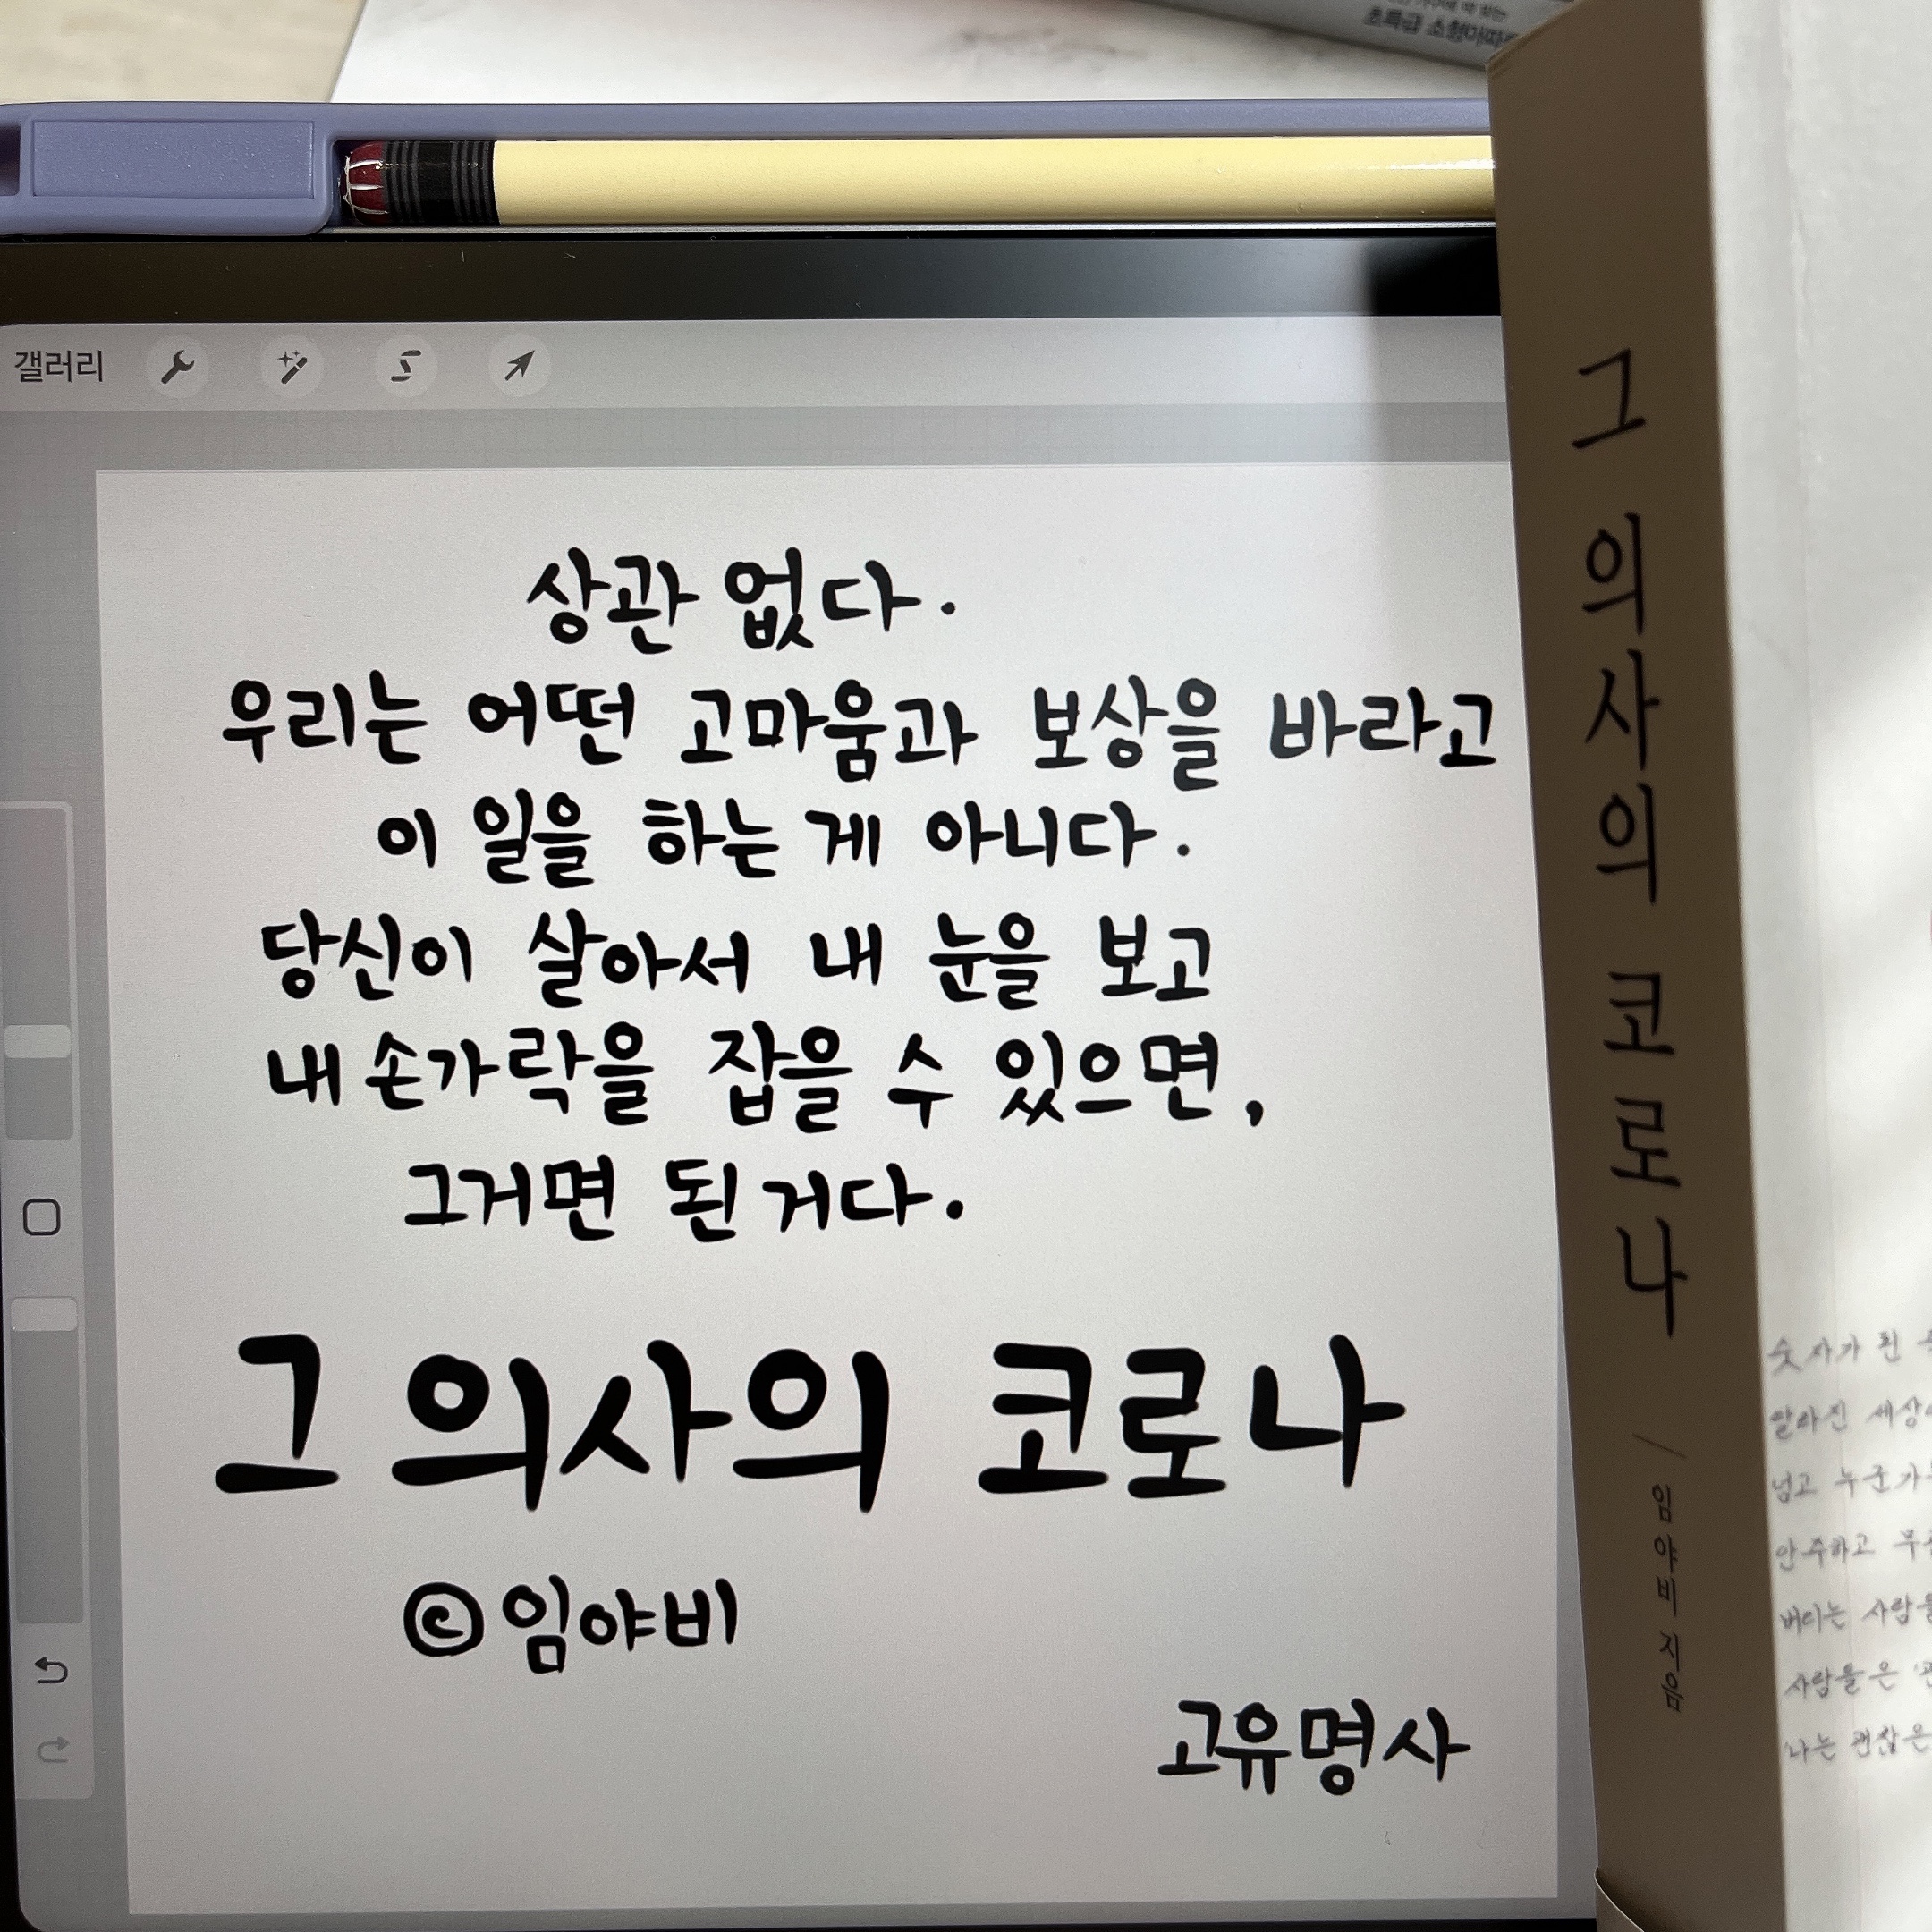 초특급 소형마파
갤러리
상관 없다.
우리는 어떤 고마움과 보상을 바라고
이 일을 하는 게 아니다.
당신이 살아서 내 눈을 보고
내 손가락을 잡을 수 있으면,
그거면 된 거다.
그 의사의 코로나
©임야비
고유명사
그 의사의 코로나 / 임야비 지음
숫자가 된
알아진 세상
넘고 누군가
안주하고
버리는 사람들
사람들은
나는 괜찮은